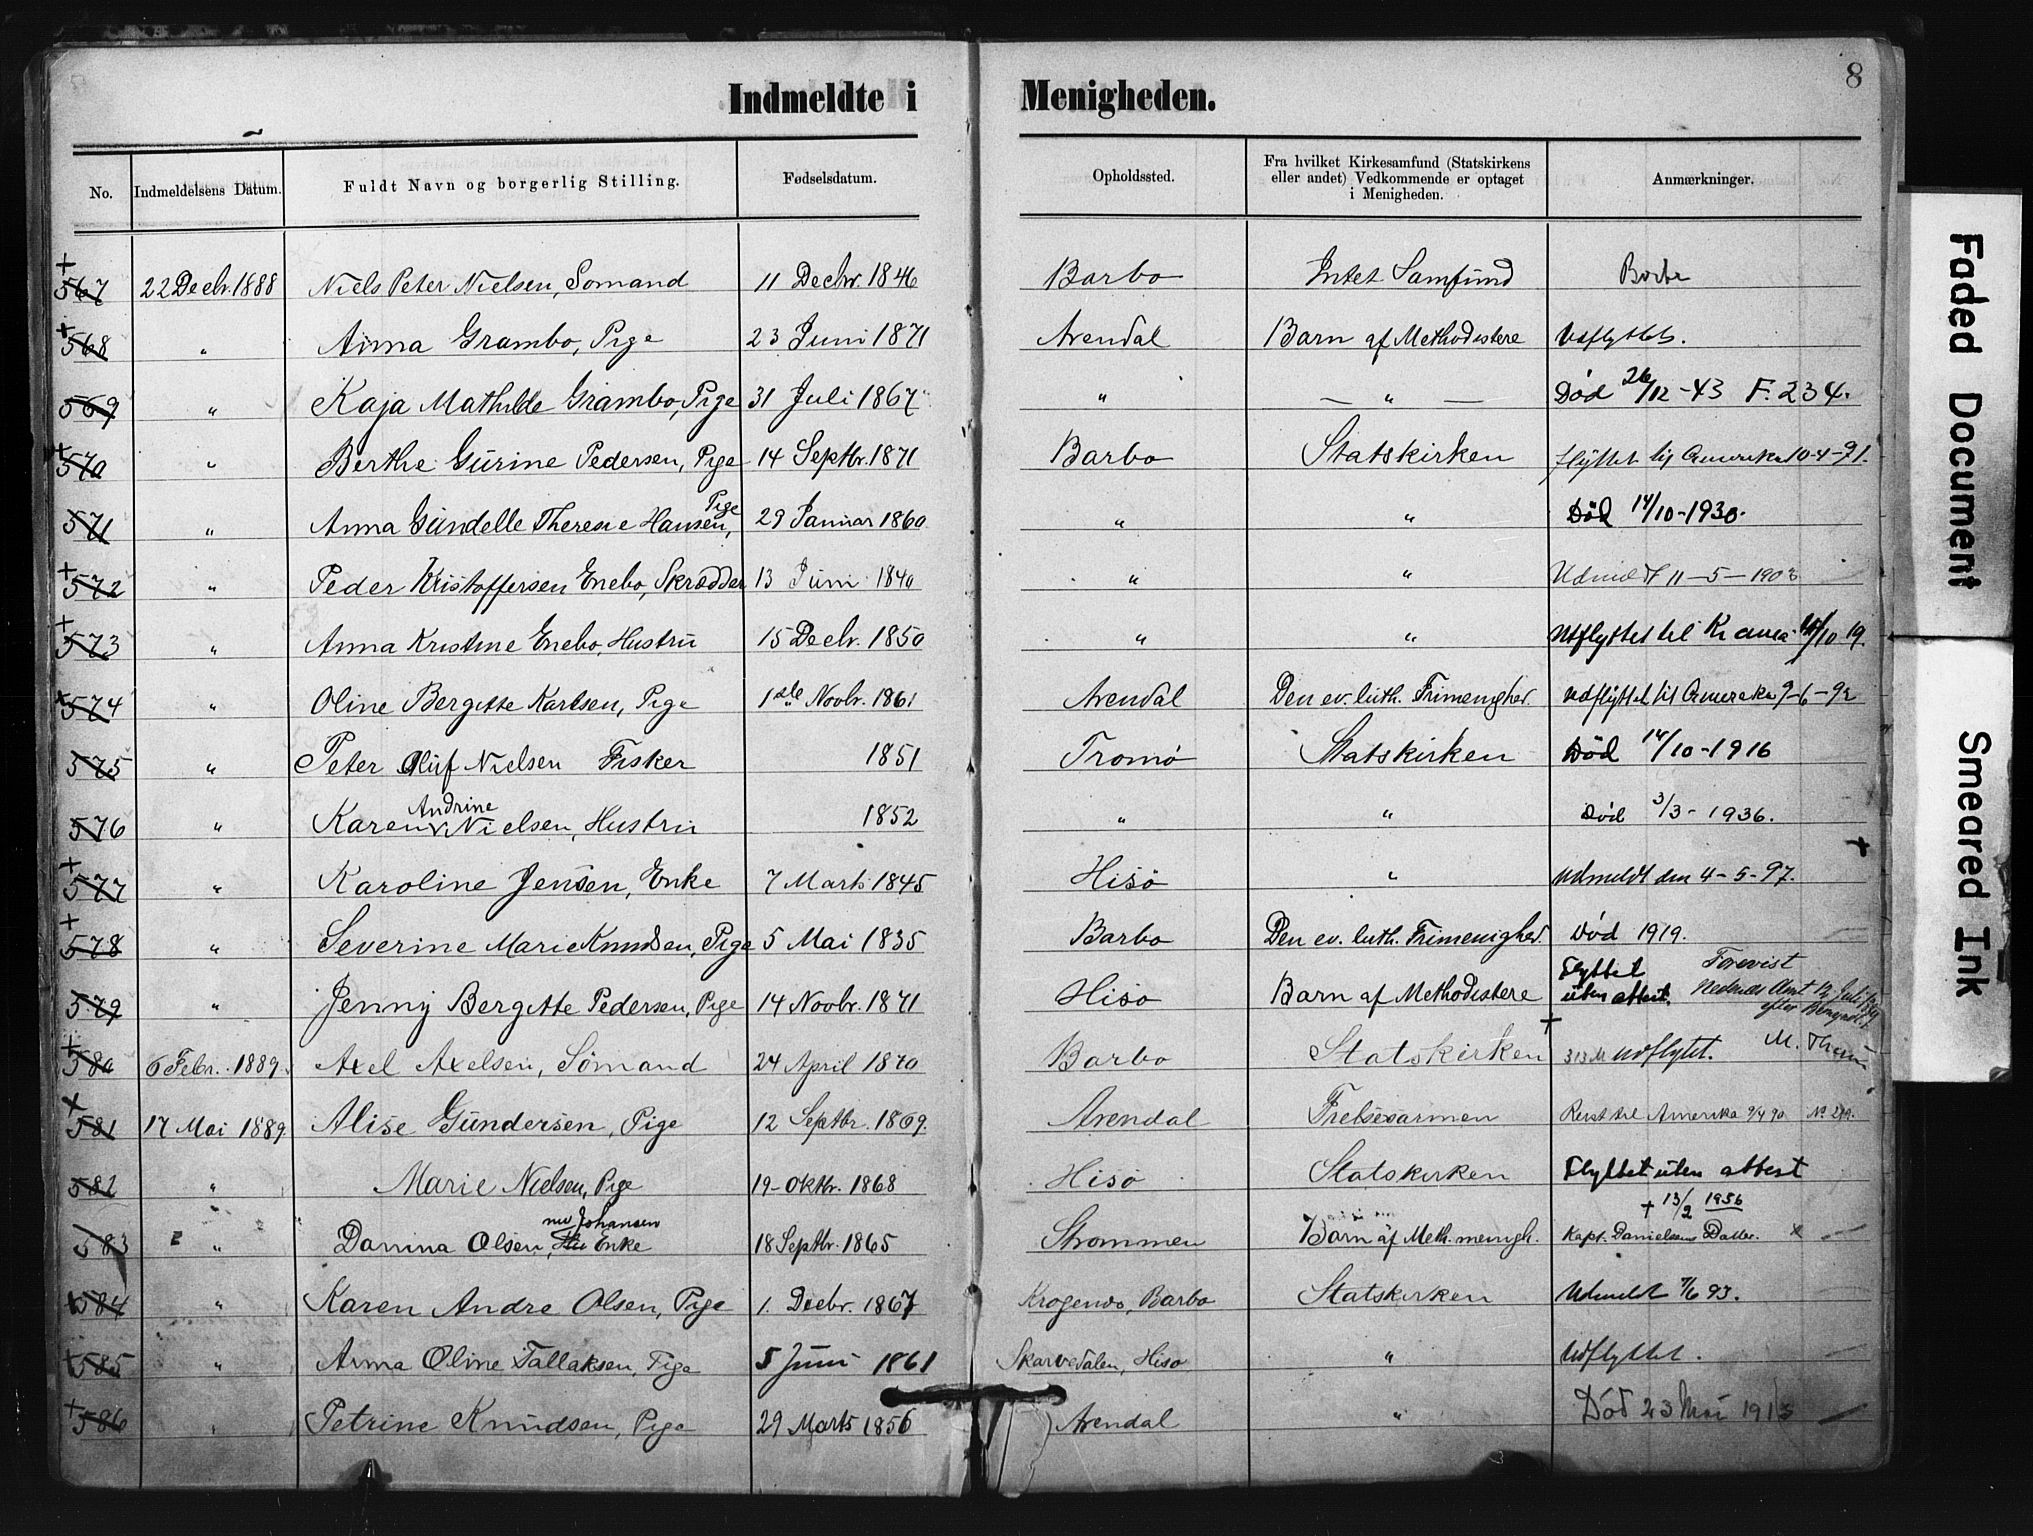 8
Indmeldte i Menigheden.
No. Indmeldelsens Datum. Fuldt Navn og borgerlig Stilling. Fødselsdatum. Opholdssted. Fra hvilket Kirkesamfund (Statskirkens eller andet) Vedkommende er optaget i Menigheden. Anmærkninger.
+ 567 22 Decbr. 1888 Niels Peter Nielsen, Sømand 11 Decbr. 1846 Barbo Intet Samfund Borte
+ 568 " Anna Grambo, Pige 23 Juni 1871 Arendal Barn af Methodistere Udflyttet.
569 " Kaja Mathilde Grambo, Pige 31 Juli 1867 " — " — Død 26/12 -43 F. 234.
+ 570 " Berthe Gurine Pedersen, Pige 14 Septbr. 1871 Barbo Statskirken flyttet til Amerika 10-4-91.
571 " Anna Gundelle Therese Hansen, Pige 29 Januar 1860 " " Død 14/10-1930.
+ 572 " Peder Kristoffersen Enebo, Skrædder 13 Juni 1840 " " Udmeldt 11-5-1903
+ 573 " Anna Kristine Enebo, Hustru 15 Decbr. 1850 " " Utflyttet til Kr.ania /10 19.
+ 574 " Oline Bergitte Karlsen, Pige 1ste Novbr. 1861 Arendal Den ev. luth. Frimenighed. Udflyttet til Amerika 9-6-92
575 " Peter Oluf Nielsen Fisker 1851 Tromø Statskirken Død 14/10-1916
576 " Karen Andrine Nielsen, Hustru 1852 " " Død 3/3-1936.
+ 577 " Karoline Jensen, Enke 7 Marts 1845 Hisö " Udmeldt den 4-5-97. +
+ 578 " Severine Marie Knudsen, Pige 5 Mai 1835 Barbo Den ev. luth. Frimenighed. Død 1919.
579 " Jenny Bergitte Pedersen, Pige 14 Novbr. 1871 Hisö Barn af Methodistere Flyttet uten attest. Forevist Nedenes Amt 12 Juli efter
+ 580 6 Febr. 1889. Axel Axelsen, Sømand 24 April 1870 Barbo Statskirken + 313 M Udflytet. M.
+ 581 17 Mai 1889 Alise Gundersen, Pige 12 Septbr. 1869. Arendal Frelsesarmen Reist til Amerika 9/4 90 No 219.
582 " Marie Nielsen, Pige 19 Oktbr. 1868 Hisö Statskirken Flyttet uten attest
583 " Danina Olsen, nu Johansen Enke 18 Septbr. 1865 Strommen Barn af Meth. menigh. + 13/2 1956 Kapt. Danielsens Datter. x
+ 584 " Karen Andre Olsen, Pige 1. Decbr. 1867 Krogenes, Barbo Statskirken Udmeldt 7/6 93.
+ 585 " Anna Oline Tallaksen, Pige 5 Juni 1861 Skarvedalen, Hisö " Udflyttet.
+ 586 " Petrine Knudsen, Pige 29 Marts 1856 Arendal " Död 23 Mai 1913
Faded Document
Smeared Ink